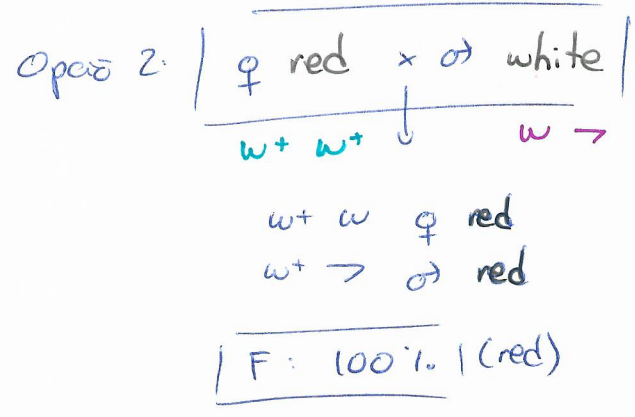 Opção 2: ♀ red x ♂ white
w+ w+ w ⇁
w+ w ♀ red
w+ ⇁ ♂ red
F: 100% (red)